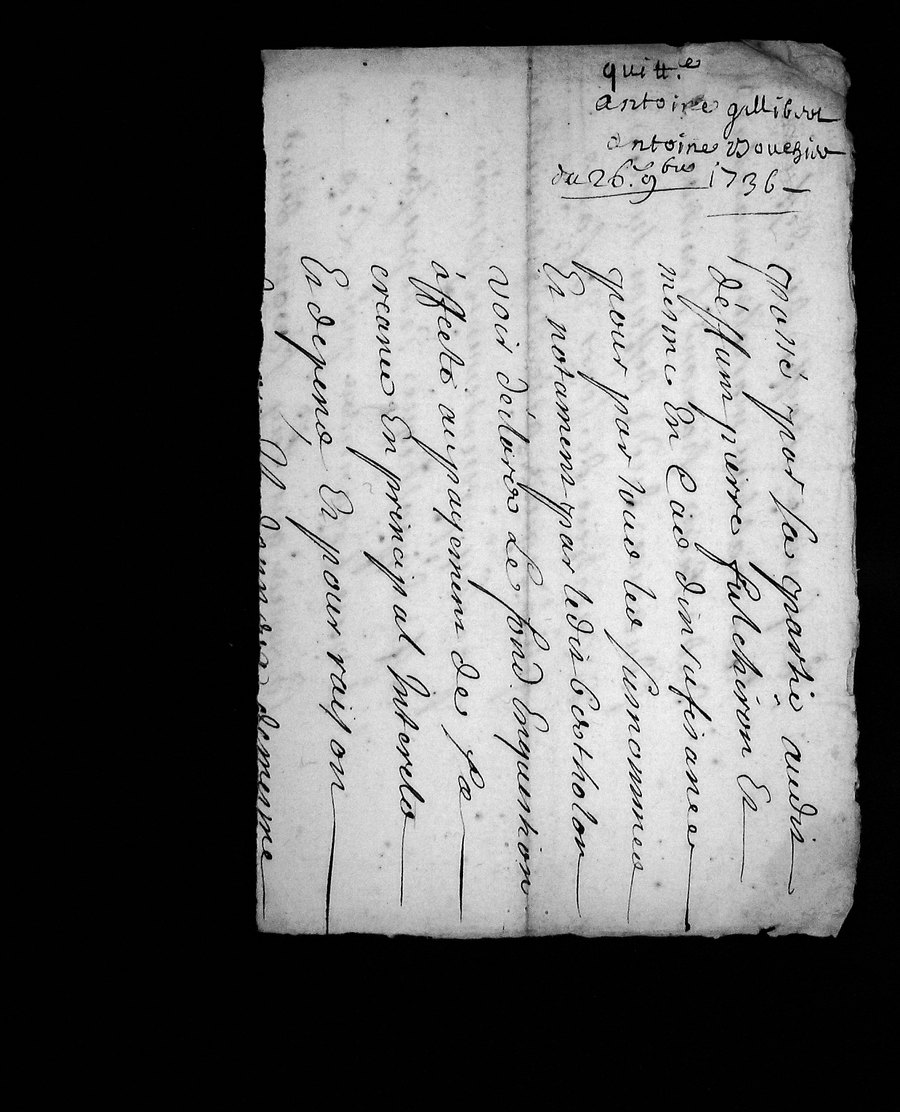 quitt.e
antoine gallibert
antoine Bouchier
du 26.e 9bre 1736
passé par la partie audit
déffunt pierre fulchiron Et
mesme En Cas dinsufisance
pour par tous les surnommes
Et notament par ledit Berthelon
voir déclarer Le fond Enquestion
affecté aupayement de sa
creance En principal Interets
Et depens, Et pour raison
demesme